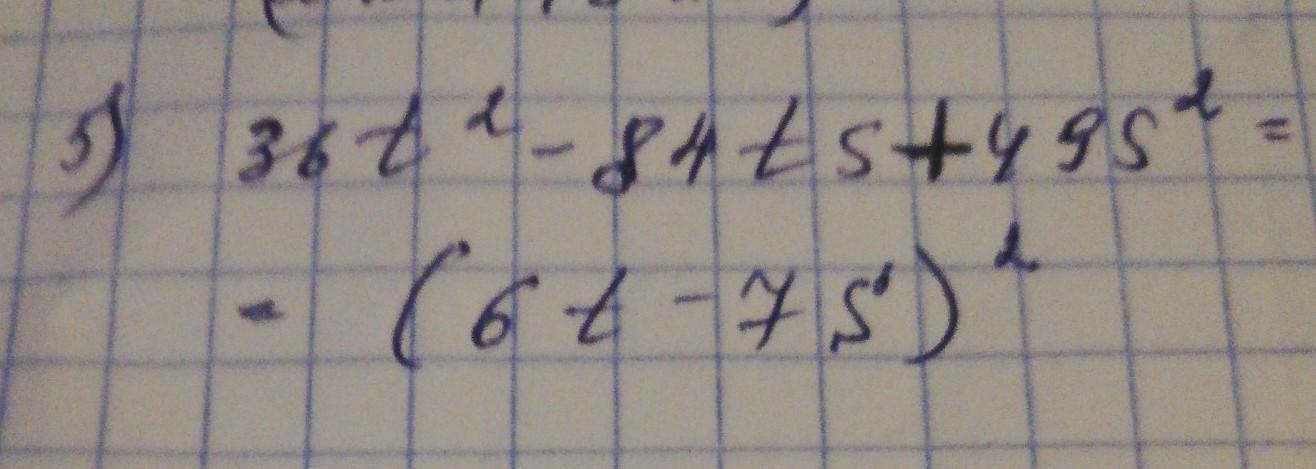 5) 36t² - 84ts + 49s² =
= (6t - 7s)²